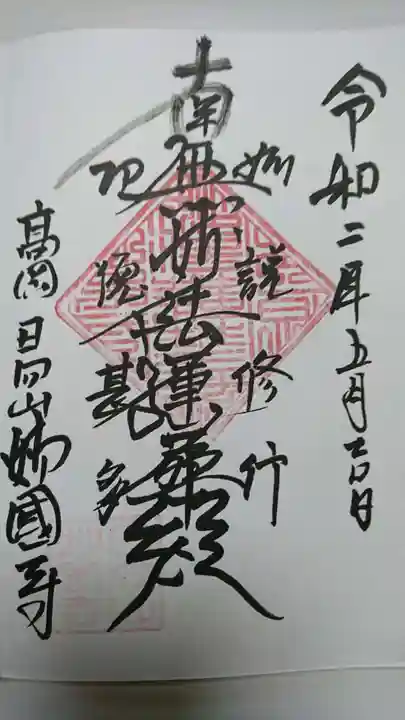 令和二年五月
如説修行
南無妙法蓮華経
功徳甚多
高岡
妙國寺